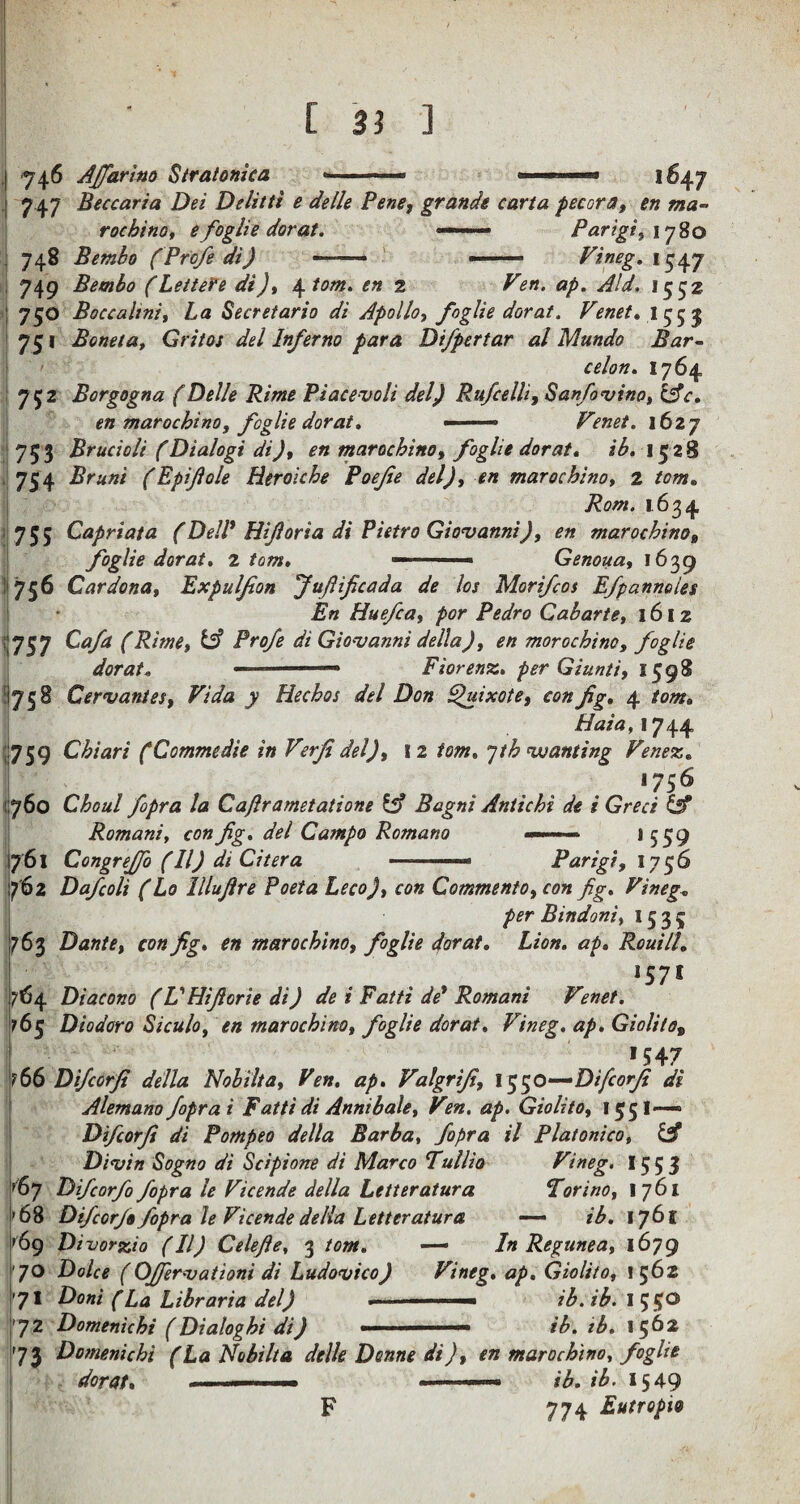 [ 33 ]
746 Aſſarino Stratonica —— —— 1647
747 Beccaria Dei Delitti e delle Pene, grande carta pecora, en ma-
rochino, e foglie dorat. —— Parigi, 1780
748 Bembo (Proſe di) —— —— Vineg. 1547
749 Bembo (Lettere di), 4 tom. en 2 Ven. ap. Ald. 1552
750 Boccalini, La Secretario di Apollo, foglie dorat. Venet. 1553
751 Boneta, Gritos del Inferno para Diſpertar al Mundo Bar-
celon. 1764
752 Borgogna (Delle Rime Piacevoli del) Ruſcelli, Sanſovino, &c.
en marochino, foglie dorat. —— Venet. 1627
753 Brucioli (Dialogi di), en marochino, foglie dorat. ib. 1528
754 Bruni (Epiſtole Heroiche Poeſie del), en marochino, 2 tom.
Rom. 1634
755 Capriata (Dell' Hiſtoria di Pietro Giovanni), en marochino,
foglie dorat. 2 tom. —— Genoua, 1639
756 Cardona, Expulſion Juſtificada de los Moriſcos Eſpannoles
En Hueſca, por Pedro Cabarte, 1612
757 Caſa (Rime, & Proſe di Giovanni della), en morochino, foglie
dorat. —— Fiorenz. per Giunti, 1598
758 Cervantes, Vida y Hechos del Don Quixote, con fig. 4 tom.
Haia, 1744
759 Chiari (Commedie in Verſi del), 12 tom. 7th wanting Venez.
1756
760 Choul ſopra la Caſtrametatione & Bagni Antichi de i Greci &
Romani, con fig. del Campo Romano —— 1559
761 Congreſſo (Il) di Citera —— Parigi, 1756
762 Daſcoli (Lo Illuſtre Poeta Leco), con Commento, con fig. Vineg.
per Bindoni, 1535
763 Dante, con fig. en marochino, foglie dorat. Lion. ap. Rouill.
1571
764 Diacono (L'Hiſtorie di) de i Fatti de' Romani Venet.
765 Diodoro Siculo, en marochino, foglie dorat. Vineg. ap. Giolito,
1547
766 Diſcorſi della Nobilta, Ven. ap. Valgriſi, 1550—Diſcorſi di
Alemano ſopra i Fatti di Annibale, Ven. ap. Giolito, 1551—
Diſcorſi di Pompeo della Barba, ſopra il Platonico, &
Divin Sogno di Scipione di Marco Tullio Vineg. 1553
767 Diſcorſo ſopra le Vicende della Letteratura Torino, 1761
768 Diſcorſo ſopra le Vicende della Letteratura — ib. 1761
769 Divorzio (Il) Celeſte, 3 tom. — In Regunea, 1679
770 Dolce (Oſſervationi di Ludovico) Vineg. ap. Giolito, 1562
771 Doni (La Libraria del) —— ib. ib. 1550
772 Domenichi (Dialoghi di) —— ib. ib. 1562
773 Domenichi (La Nobilta delle Donne di), en marochino, foglie
dorat. —— —— ib. ib. 1549
F 774 Eutropio